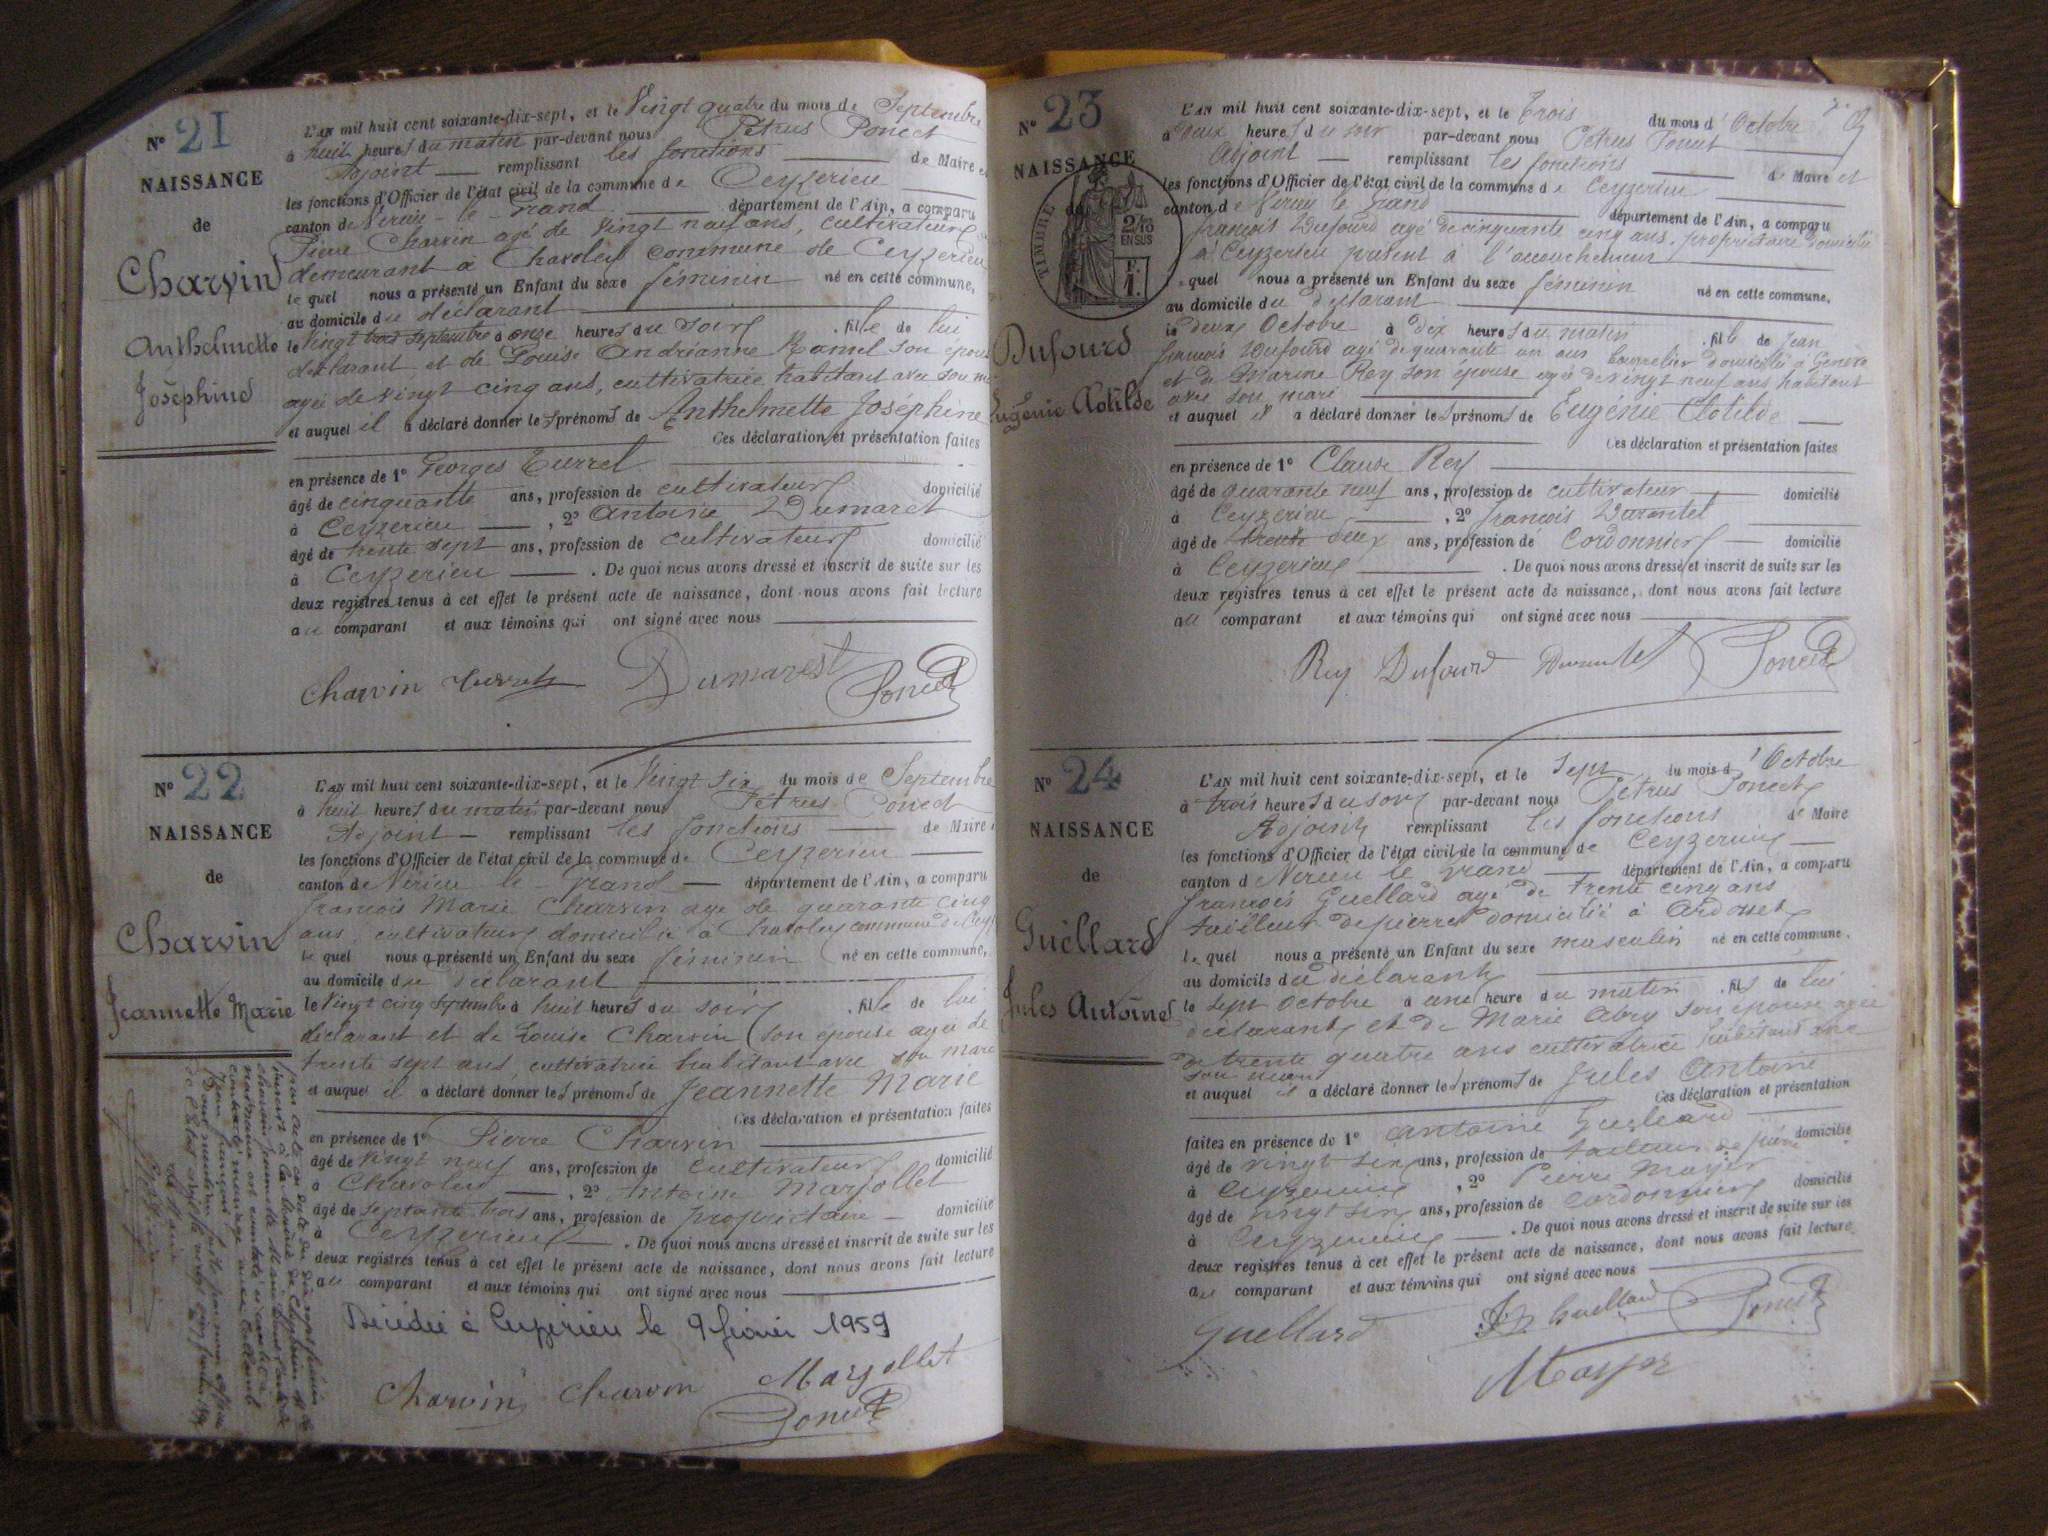 N° 21
NAISSANCE
de
Charvin
Anthelmette
Joséphine
L'AN mil huit cent soixante-dix-sept, et le Vingt quatre du mois de Septembre
à huit heures du matin par-devant nous Pétrus Poncet
Adjoint remplissant les fonctions de Maire et
les fonctions d'Officier de l'état civil de la commune de Ceyzerieu
canton de Virieu-le-Grand département de l'Ain, a comparu
Pierre Charvin agé de vingt neuf ans, cultivateur
demeurant à Chavoley commune de Ceyzerieu
le quel nous a présenté un Enfant du sexe féminin né en cette commune,
au domicile du déclarant
le Vingt trois septembre à onze heures du soir fille de lui
déclarant et de Louise Andrianne son épouse
agée de vingt cinq ans, cultivatrice habitant avec son
et auquel il a déclaré donner les prénoms de Anthelmette Joséphine
Ces déclaration et présentation faites
en présence de 1° Georges Turrel
âgé de cinquante ans, profession de cultivateur domicilié
à Ceyzerieu, 2° Antoine Dumarest
âgé de trente sept ans, profession de cultivateur domicilié
à Ceyzerieu. De quoi nous avons dressé et inscrit de suite sur les
deux registres tenus à cet effet le présent acte de naissance, dont nous avons fait lecture
au comparant et aux témoins qui ont signé avec nous
Charvin Turrel Dumarest Poncet
N° 22
NAISSANCE
de
Charvin
Jeannette Marie
L'AN mil huit cent soixante-dix-sept, et le Vingt six du mois de Septembre
à huit heures du matin par-devant nous Pétrus Poncet
Adjoint remplissant les fonctions de Maire
les fonctions d'Officier de l'état civil de la commune de Ceyzerieu
canton de Virieu le Grand département de l'Ain, a comparu
françois Marie Charvin agé de quarante cinq
ans, cultivateur domicilié à Chavoley commune de Ceyz
le quel nous a présenté un Enfant du sexe féminin né en cette commune,
au domicile du déclarant
le Vingt cinq septembre à huit heures du soir fille de lui
déclarant et de Louise Charvin son épouse agée de
trente sept ans, cultivatrice habitant avec son mari
et auquel il a déclaré donner les prénoms de Jeannette Marie
Ces déclaration et présentation faites
en présence de 1° Pierre Charvin
âgé de vingt neuf ans, profession de cultivateur domicilié
à Chavoley, 2° Antoine Marjollet
âgé de septante trois ans, profession de propriétaire domicilié
à Ceyzerieu. De quoi nous avons dressé et inscrit de suite sur les
deux registres tenus à cet effet le présent acte de naissance, dont nous avons fait lecture
au comparant et aux témoins qui ont signé avec nous
Décédée à Ceyzerieu le 9 février 1959
Charvin Charvin Marjollet
Poncet
N° 23
NAISSANCE
de
TIMBRE
2/10
EN SUS
Dufourd
Eugénie Clotilde
L'AN mil huit cent soixante-dix-sept, et le trois du mois d'Octobre
à deux heures du soir par-devant nous Pétrus Poncet
Adjoint remplissant les fonctions de Maire et
les fonctions d'Officier de l'état civil de la commune de Ceyzerieu
canton de Virieu le Grand département de l'Ain, a comparu
françois Dufourd agé de cinquante cinq ans, propriétaire domicilié
à Ceyzerieu présent à l'accouchement
le quel nous a présenté un Enfant du sexe féminin né en cette commune,
au domicile du déclarant
le deux Octobre à dix heures du matin fille de Jean
françois Dufourd agé de quarante un ans bourrelier domicilié à Genève
et de Marine Rey son épouse agée de vingt neuf ans habitant
avec son mari
et auquel il a déclaré donner les prénoms de Eugénie Clotilde
Ces déclaration et présentation faites
en présence de 1° Claude Rey
âgé de quarante neuf ans, profession de cultivateur domicilié
à Ceyzerieu, 2° françois Durantet
âgé de trente deux ans, profession de Cordonnier domicilié
à Ceyzerieu. De quoi nous avons dressé et inscrit de suite sur les
deux registres tenus à cet effet le présent acte de naissance, dont nous avons fait lecture
au comparant et aux témoins qui ont signé avec nous
Rey Dufourd Durantet Poncet
N° 24
NAISSANCE
de
Guëllard
Jules Antoine
L'AN mil huit cent soixante-dix-sept, et le sept du mois d'Octobre
à trois heures du soir par-devant nous Pétrus Poncet
Adjoint remplissant les fonctions de Maire
les fonctions d'Officier de l'état civil de la commune de Ceyzerieu
canton de Virieu le Grand département de l'Ain, a comparu
françois Guellard agé de trente cinq ans
tailleur de pierre domicilié à Ardosset
le quel nous a présenté un Enfant du sexe masculin né en cette commune.
au domicile du déclarant
le sept Octobre à une heure du matin fils de lui
déclarant et de Marie Abry son épouse agée
de trente quatre ans cultivatrice habitant avec
son mari
et auquel il a déclaré donner les prénoms de Jules Antoine
Ces déclaration et présentation
faites en présence de 1° Antoine Guellard
âgé de vingt six ans, profession de tailleur de pierre domicilié
à Ceyzerieu, 2° Pierre Mayer
âgé de vingt six ans, profession de cordonnier domicilié
à Ceyzerieu. De quoi nous avons dressé et inscrit de suite sur les
deux registres tenus à cet effet le présent acte de naissance, dont nous avons fait lecture
au comparant et aux témoins qui ont signé avec nous
Guellard Guellard Poncet